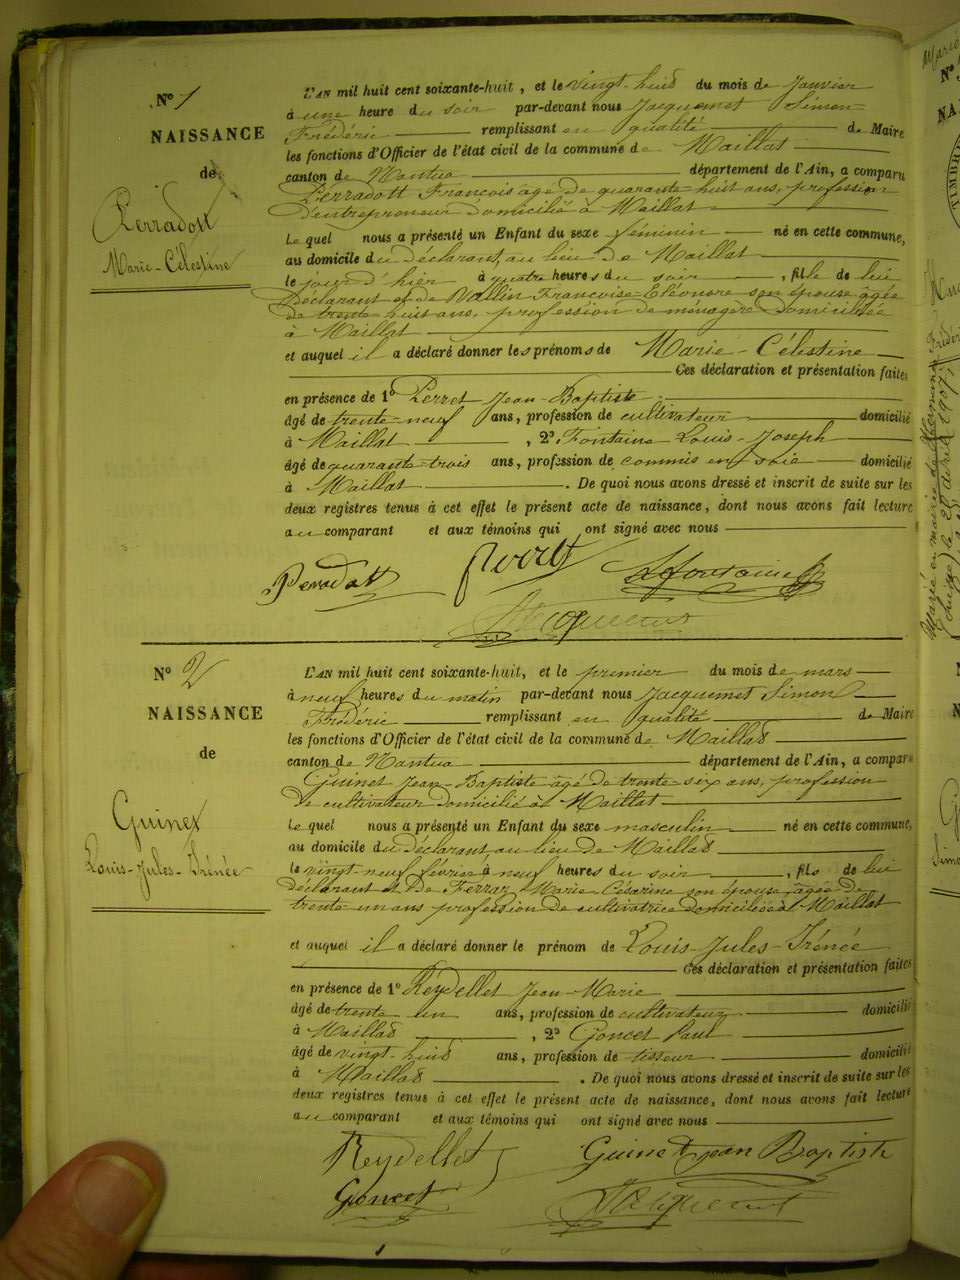 N° 1
NAISSANCE
de
Perradott
Marie-Célestine
L'AN mil huit cent soixante-huit, et le vingt-huit du mois de Janvier
à une heure du soir par-devant nous Jacquemet Simon-
Frédéric remplissant en qualité de Maire
les fonctions d'Officier de l'état civil de la commune de Maillat
canton de Nantua département de l'Ain, a comparu
Perradott François âgé de quarante-huit ans, profession
d'entrepreneur domicilié à Maillat
Le quel nous a présenté un Enfant du sexe féminin né en cette commune,
au domicile du déclarant, au lieu de Maillat
le jour d'hier à quatre heures du soir, fille de lui
déclarant et de Vallin Françoise-Eléonore son épouse âgée
de trente-huit ans, profession de ménagère domiciliée
à Maillat
et auquel il a déclaré donner les prénoms de Marie-Célestine
Ces déclaration et présentation faites
en présence de 1° Perret Jean-Baptiste
âgé de trente-neuf ans, profession de cultivateur domicilié
à Maillat, 2° Fontaine Louis-Joseph
âgé de quarante-trois ans, profession de commis en soie domicilié
à Maillat. De quoi nous avons dressé et inscrit de suite sur les
deux registres tenus à cet effet le présent acte de naissance, dont nous avons fait lecture
au comparant et aux témoins qui ont signé avec nous
Perradott Perret Lfontaine
Jacquemet
N° 2
NAISSANCE
de
Guinet
Louis-Jules-Irénée
L'AN mil huit cent soixante-huit, et le premier du mois de mars
à neuf heures du matin par-devant nous Jacquemet Simon
Frédéric remplissant en qualité de Maire
les fonctions d'Officier de l'état civil de la commune de Maillat
canton de Nantua département de l'Ain, a comparu
Guinet Jean-Baptiste âgé de trente-six ans, profession
de cultivateur domicilié à Maillat
Le quel nous a présenté un Enfant du sexe masculin né en cette commune,
au domicile du déclarant, au lieu de Maillat
le vingt-neuf février à neuf heures du soir, fils de lui
déclarant et de Ferraz Marie Césarine son épouse, âgée de
trente-un ans profession de cultivatrice domiciliée à Maillat
et auquel il a déclaré donner le prénom de Louis-Jules-Irénée
Ces déclaration et présentation faites
en présence de 1° Reydellet Jean-Marie
âgé de trente un ans, profession de cultivateur domicilié
à Maillat, 2° Goncet Paul
âgé de vingt-huit ans, profession de tisseur domicilié
à Maillat. De quoi nous avons dressé et inscrit de suite sur les
deux registres tenus à cet effet le présent acte de naissance, dont nous avons fait lecture
au comparant et aux témoins qui ont signé avec nous
Reydellet Guinet jean Baptiste
Goncet Jacquemet